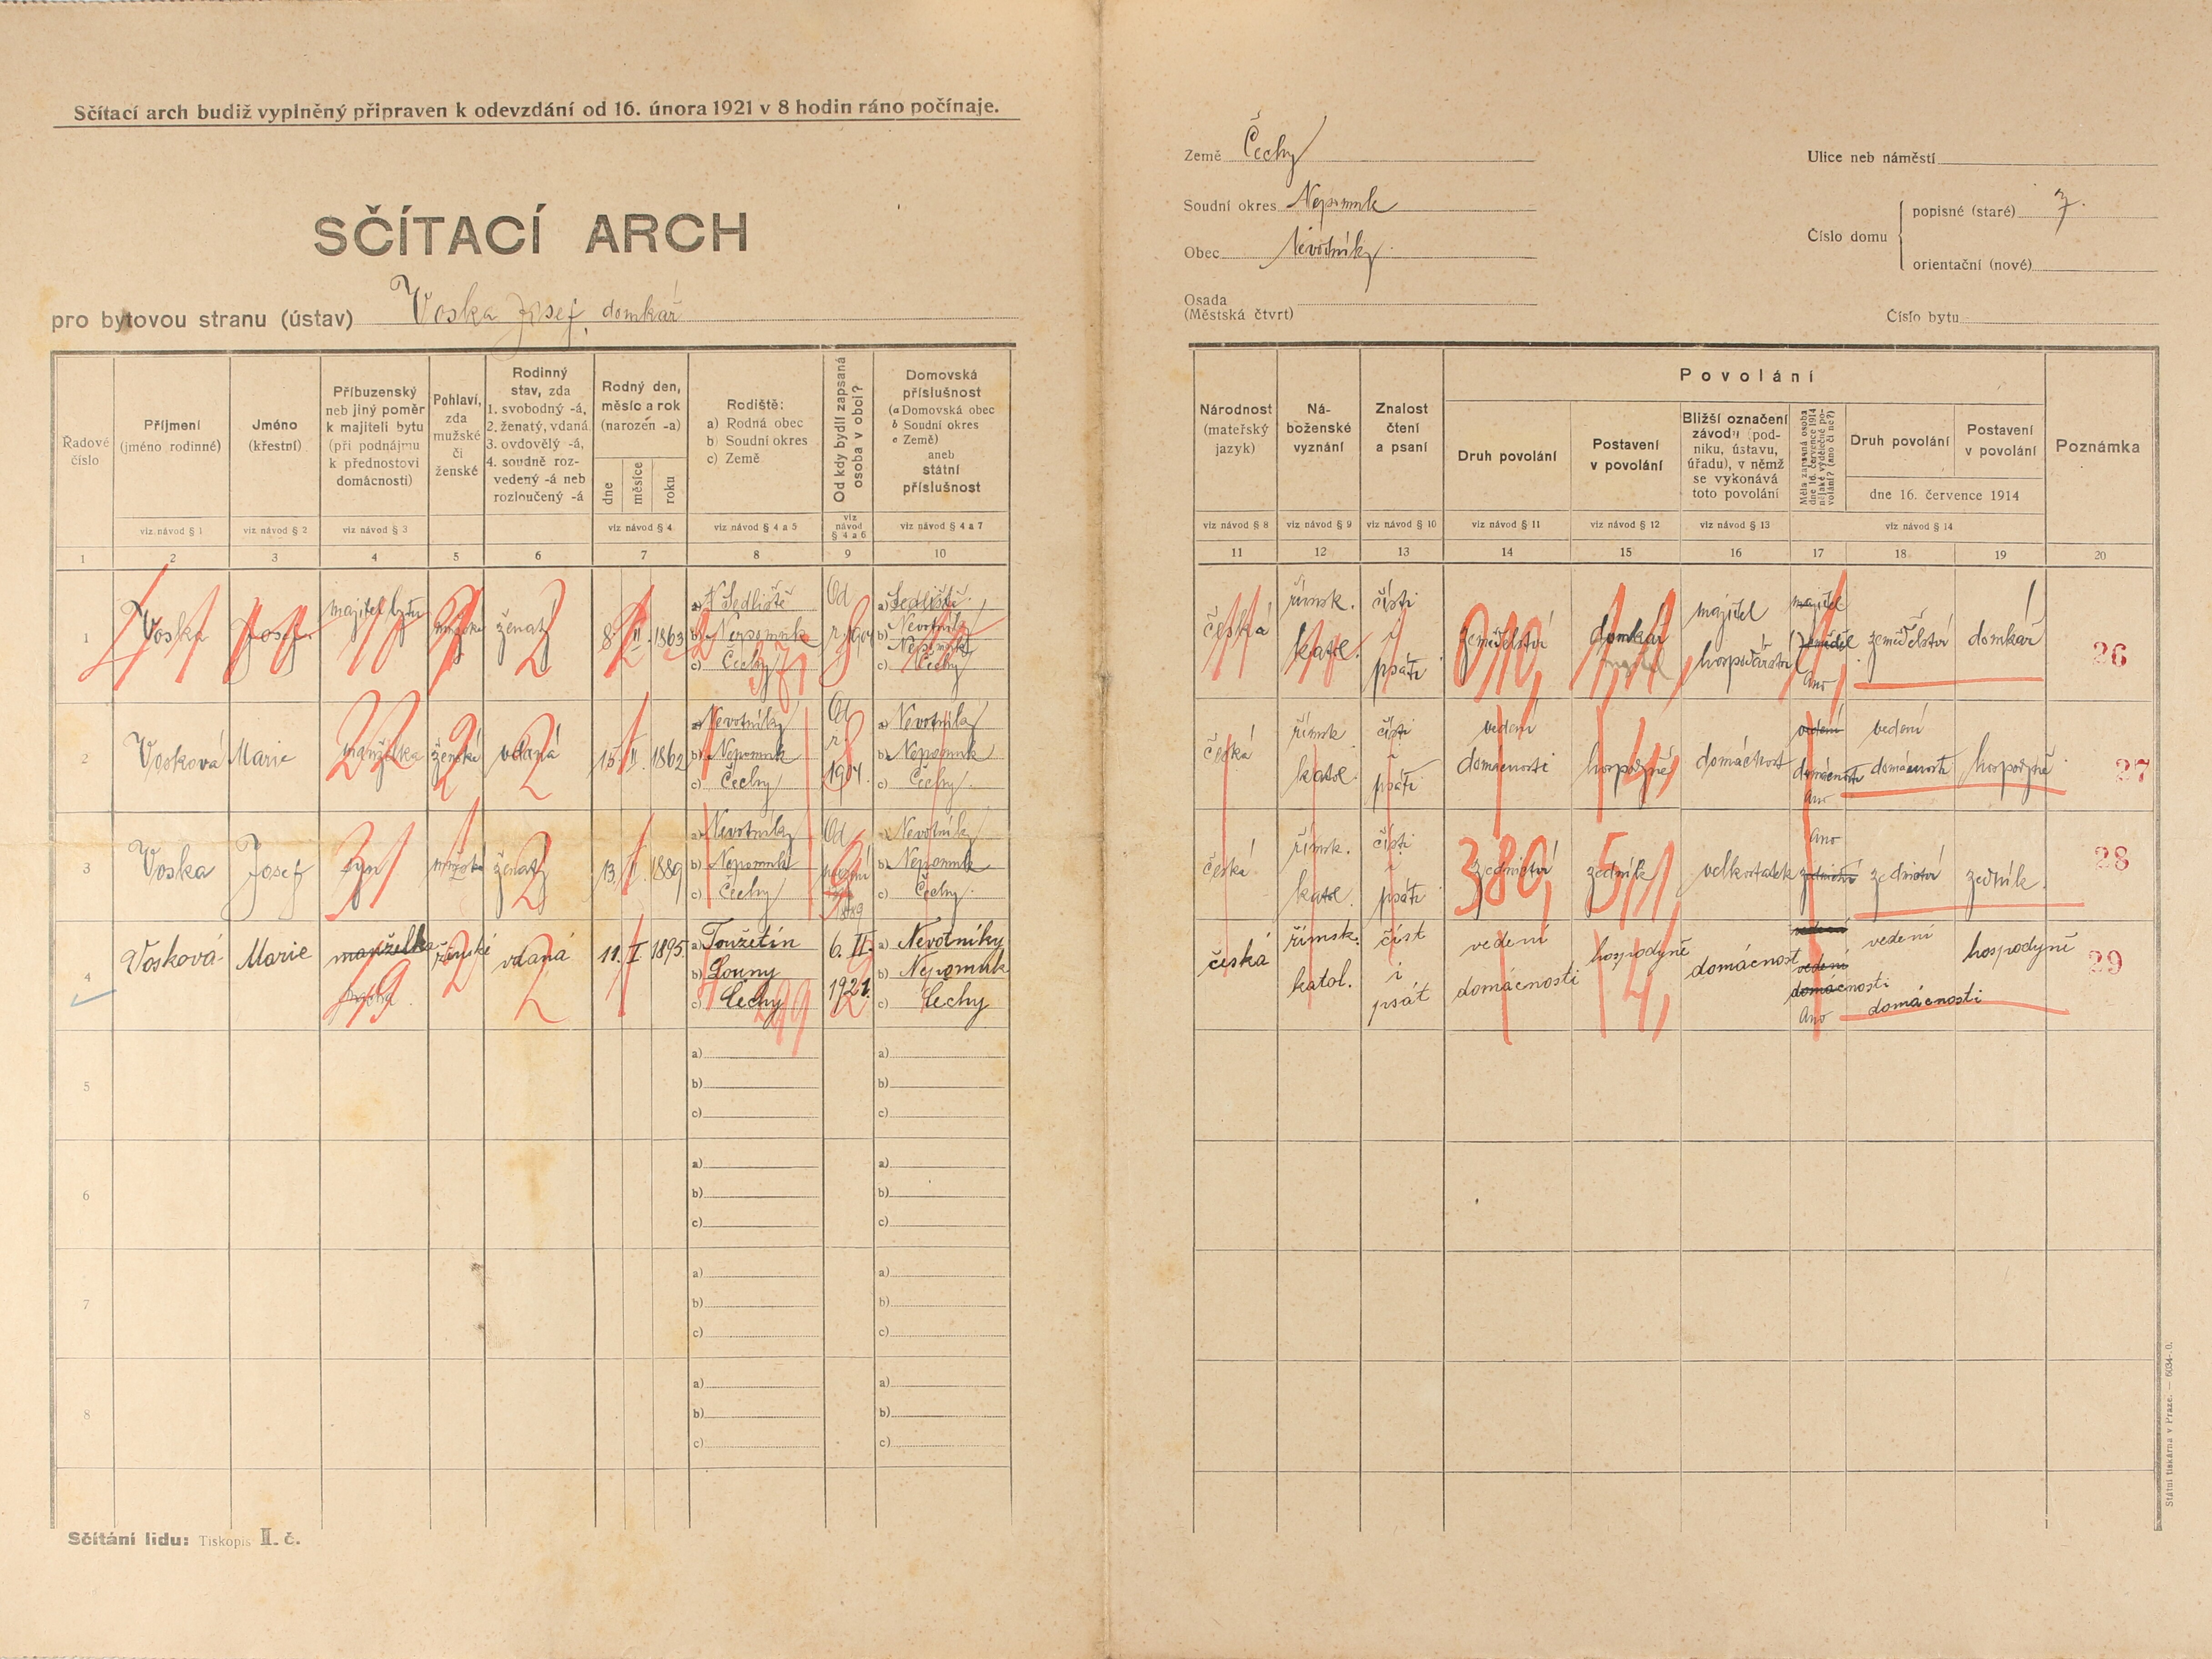 Sčítací arch budiž vyplněný připraven k odevzdání od 16. února 1921 v 8 hodin ráno počínaje.
SČÍTACÍ ARCH
pro bytovou stranu (ústav) Voska Josef, domkář
Země Čechy
Soudní okres Nepomuk
Obec Nevotníky
Osada
(Městská čtvrt)
Ulice neb náměstí
Číslo domu
popisné (staré) 7.
orientační (nové)
Číslo bytu
Řadové číslo
Příjmení (jméno rodinné)
viz návod § 1
Jméno (křestní)
viz návod § 2
Příbuzenský neb jiný poměr k majiteli bytu (při podnájmu k přednostovi domácnosti)
viz návod § 3
Pohlaví, zda mužské či ženské
Rodinný stav, zda 1. svobodný -á, 2. ženatý, vdaná 3. ovdovělý -á, 4. soudně rozvedený -á neb rozloučený -á
Rodný den, měsíc a rok (narozen -a)
dne měsíce roku
viz návod § 4
Rodiště: a) Rodná obec b) Soudní okres c) Země
viz návod § 4 a 5
Od kdy bydlí zapsaná osoba v obci?
viz návod § 4 a 6
Domovská příslušnost (a Domovská obec b Soudní okres c Země) aneb státní příslušnost
viz návod § 4 a 7
Národnost (mateřský jazyk)
viz návod § 8
Náboženské vyznání
viz návod § 9
Znalost čtení a psaní
viz návod § 10
Povolání
Druh povolání
viz návod § 11
Postavení v povolání
viz návod § 12
Bližší označení závodu (podniku, ústavu, úřadu), v němž se vykonává toto povolání
viz návod § 13
Měla zapsaná osoba dne 16. července 1914 nějaké výdělečné povolání? (ano či ne?)
Druh povolání
Postavení v povolání
dne 16. července 1914
viz návod § 14
Poznámka
1 2 3 4 5 6 7 8 9 10 11 12 13 14 15 16 17 18 19 20
1 Voska Josef majitel bytu mužské ženatý 8. II. 1863 a) Sedliště b) Nepomuk c) Čechy Od r. 1904 a) Sedliště Nevotníky b) Nepomuk c) Čechy
česká římsk. katol. čísti i psáti zemědělství domkář majitel hospodářství majitel Ano zemědělství domkář 26
2 Vosková Marie manželka ženské vdaná 15. II. 1862 a) Nevotníky b) Nepomuk c) Čechy Od r. 1904. a) Nevotníky b) Nepomuk c) Čechy
česká římsk. katol. čísti i psáti vedení domácnosti hospodyně domácnost vedení domácnosti Ano vedení domácnosti hospodyně 27
3 Voska Josef syn mužské ženatý 13. II. 1889 a) Nevotníky b) Nepomuk c) Čechy Od 1889 a) Nevotníky b) Nepomuk c) Čechy
česká římsk. katol. čísti i psáti zednictví zedník velkostatek Ano zednictví zednictví zedník. 28
4 Vosková Marie manželka ženské vdaná 11. I. 1895. a) Toužetín b) Louny c) Čechy 6. II. 1921. a) Nevotníky b) Nepomuk c) Čechy
česká římsk. katol. číst i psát vedení domácnosti hospodyně domácnost vedení domácnosti Ano vedení domácnosti hospodyně 29
5 a) b) c) a) b) c)
6 a) b) c) a) b) c)
7 a) b) c) a) b) c)
8 a) b) c) a) b) c)
Sčítání lidu: Tiskopis II. č.
Státní tiskárna v Praze. — 6034-.0.